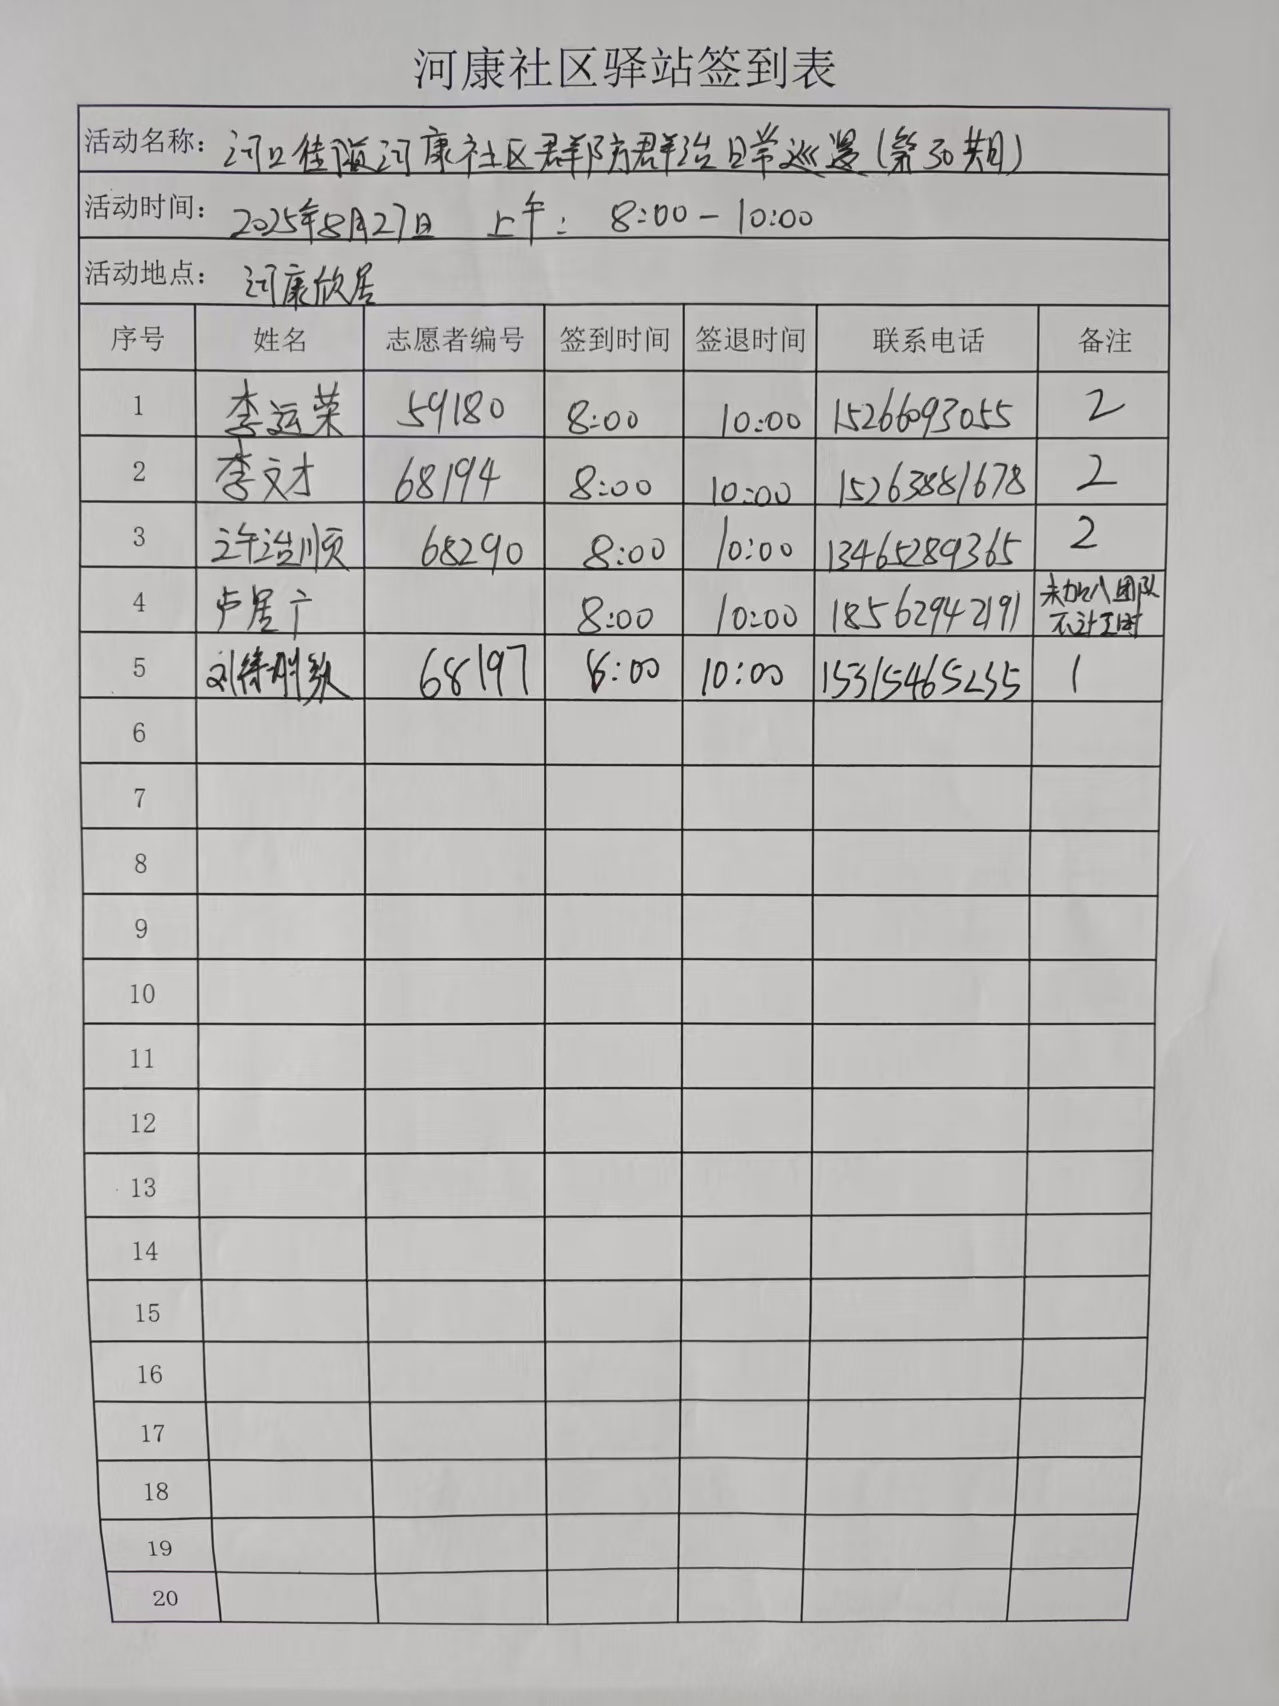 河康社区驿站签到表
活动名称：河口街道河康社区群防群治日常巡逻(第30期)
活动时间：2025年8月27日 上午：8:00-10:00
活动地点：河康欣居
序号 姓名 志愿者编号 签到时间 签退时间 联系电话 备注
1 李运荣 59180 8:00 10:00 15266093055 2
2 李文才 68194 8:00 10:00 15263881678 2
3 许治顺 68290 8:00 10:00 13465289365 2
4 卢星广 8:00 10:00 18562942191 未加入团队
不计工时
5 68197 10:00 15315465235 1
6
7
8
9
10
11
12
13
14
15
16
17
18
19
20